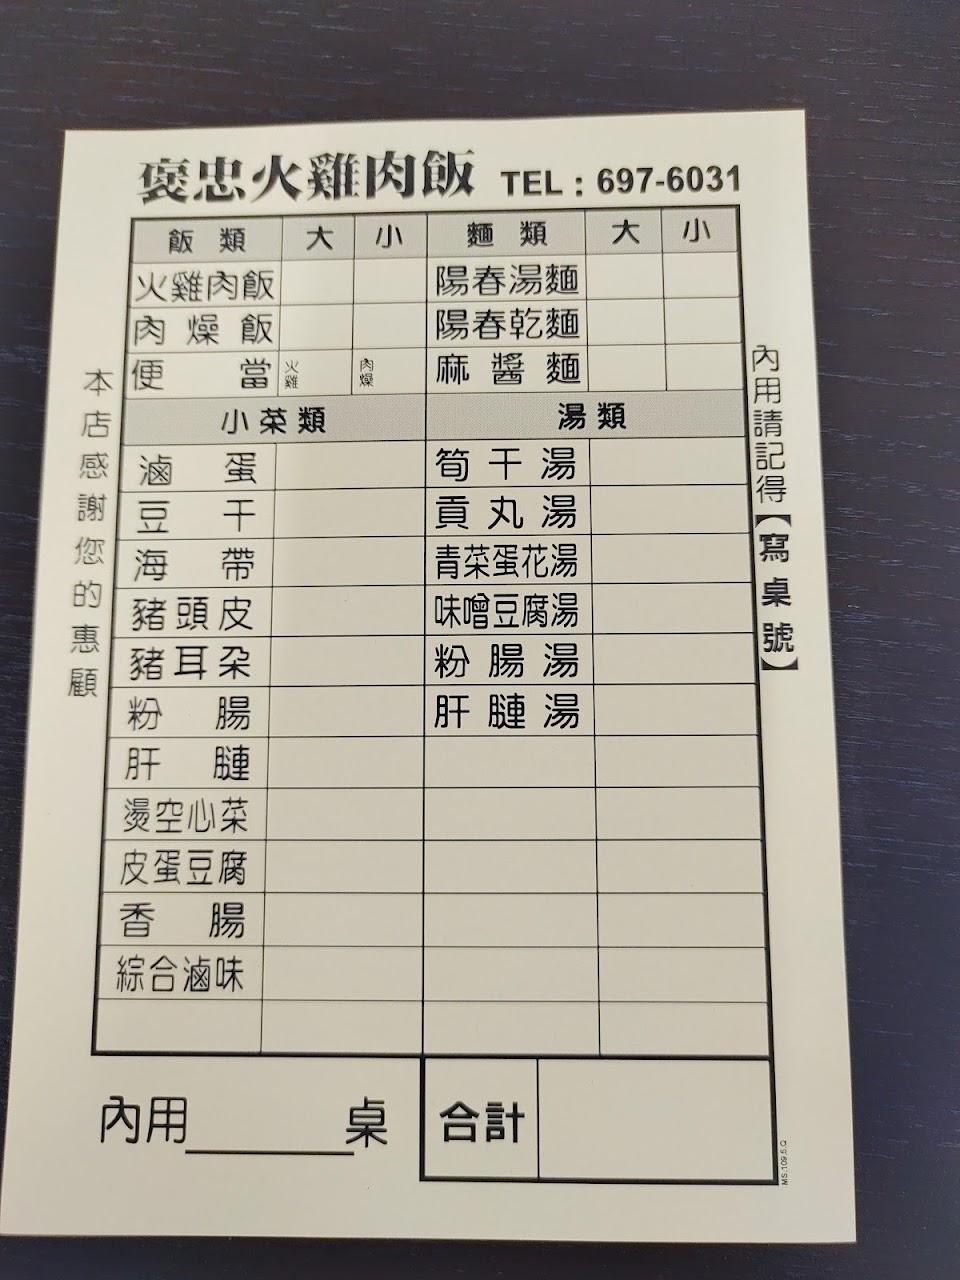 褒忠火雞肉飯 TEL：697-6031
飯類 大 小 麵類 大 小
火雞肉飯 陽春湯麵
肉燥飯 陽春乾麵
便當 火雞 肉燥 麻醬麵
小菜類 湯類
滷蛋 筍干湯
豆干 貢丸湯
海帶 青菜蛋花湯
豬頭皮 味噌豆腐湯
豬耳朵 粉腸湯
粉腸 肝腱湯
肝腱
燙空心菜
皮蛋豆腐
香腸
綜合滷味
內用______桌 合計
本店感謝您的惠顧
內用請記得【寫桌號】
MS.109.5.Q